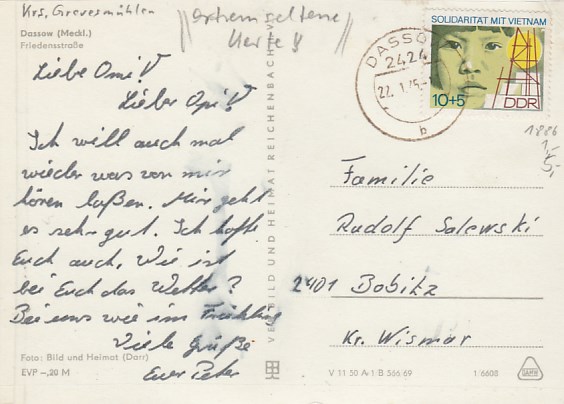 Krs. Grevesmühlen
Dassow (Meckl.)
Friedensstraße
Liebe Omi!
Lieber Opi!
Ich will auch mal
wieder was von mir
hören laßen. Mir geht
es sehr gut. Ich hoffe
Euch auch. Wie ist
bei Euch das Wetter?
Bei uns wie im Frühling
Viele Grüße
Euer Peter
Foto: Bild und Heimat (Darr)
EVP –,20 M
extrem seltene
Karte!
VEB BILD UND HEIMAT REICHENBACH
DASSO
2424
22. 1. 75
b
SOLIDARITÄT MIT VIETNAM
10+5
DDR
1886
1,-
5,-
Familie
Rudolf Salewski
2401 Bobitz
Kr. Wismar
V 11 50 A 1 B 566/69
1/6608